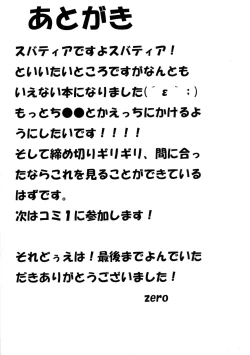 あとがき
スパティアですよスパティア！
といいたいところですがなんとも
いえない本になりました(´ε｀：)
もっとち●●とかえっちにかけるよ
うにしたいです！！！！
そして締め切りギリギリ、間に合っ
たならこれを見ることができている
はずです。
次はコミ1に参加します！
それどぅえは！最後までよんでいた
だきありがとうございました！
zero